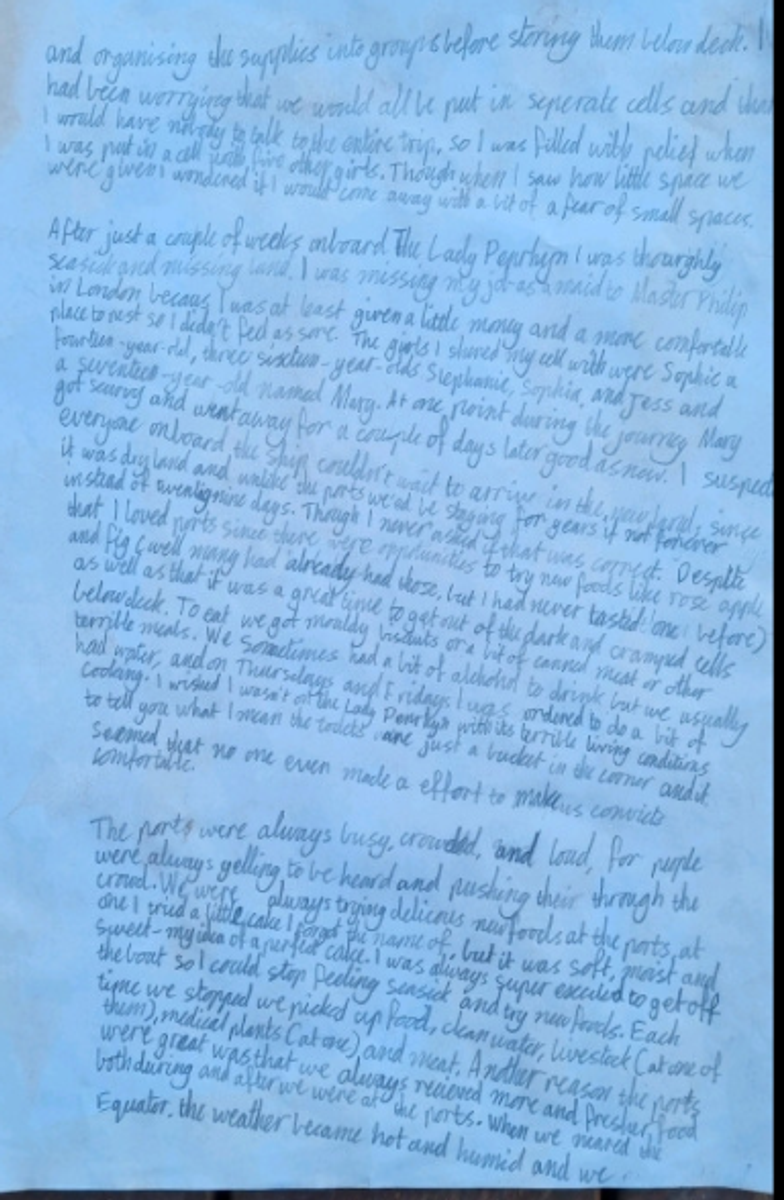 and organising the supplies into groups before storing them below deck. I
had been worrying that we would all be put in seperate cells and that
I would have nobody to talk to the entire trip, so I was filled with relief when
I was put in a cell with five other girls. Though when I saw how little space we
were given I wondered if I would come away with a bit of a fear of small spaces.
After just a couple of weeks onboard The Lady Penrhyn I was thourghly
seasick and missing land. I was missing my job as a maid to Master Philip
in London becaus I was at least given a little money and a more comfortable
place to rest so I didn't feel as sore. The girls I shared my cell with were Sophie a
fourteen-year-old, three sixteen-year-olds Stephanie, Sophia, and Jess and
a seventeen-year-old named Mary. At one point during the journey Mary
got scurvy and went away for a couple of days later good as new. I suspect
everyone onboard the ship couldn't wait to arrive in the new land, since
it was dry land and unlike the ports we'd be staying for years if not forever
instead of twentynine days. Though I never asked if that was correct. Despite
that I loved ports since there were oppotunities to try new foods like rose apple
and fig (well many had already had those, but I had never tasted one before)
as well as that it was a great time to get out of the dark and cramped cells
below deck. To eat we got mouldy biscuits or a bit of canned meat or other
terrible meals. We sometimes had a bit of alchohol to drink but we usually
had water, and on Thursdays and Fridays I was ordered to do a bit of
cooking. I wished I wasn't on the Lady Penrhyn with its terrible living conditions
to tell you what I mean the toilets are just a bucket in the corner and it
seemed that no one even made a effort to make us convicts
comfortable.
The ports were always busy, crowded, and loud, for people
were always yelling to be heard and pushing their through the
crowd. We were always trying delicous new foods at the ports, at
one I tried a little cake I forgot the name of, but it was soft, moist and
sweet-my idea of a perfect cake. I was always super excited to get off
the boat so I could stop feeling seasick and try new foods. Each
time we stopped we picked up food, clean water, livestock (at one of
them), medical plants (at one) and meat. Another reason the ports
were great was that we always recieved more and fresher food
both during and after we were at the ports. When we neared the
Equator, the weather became hot and humid and we